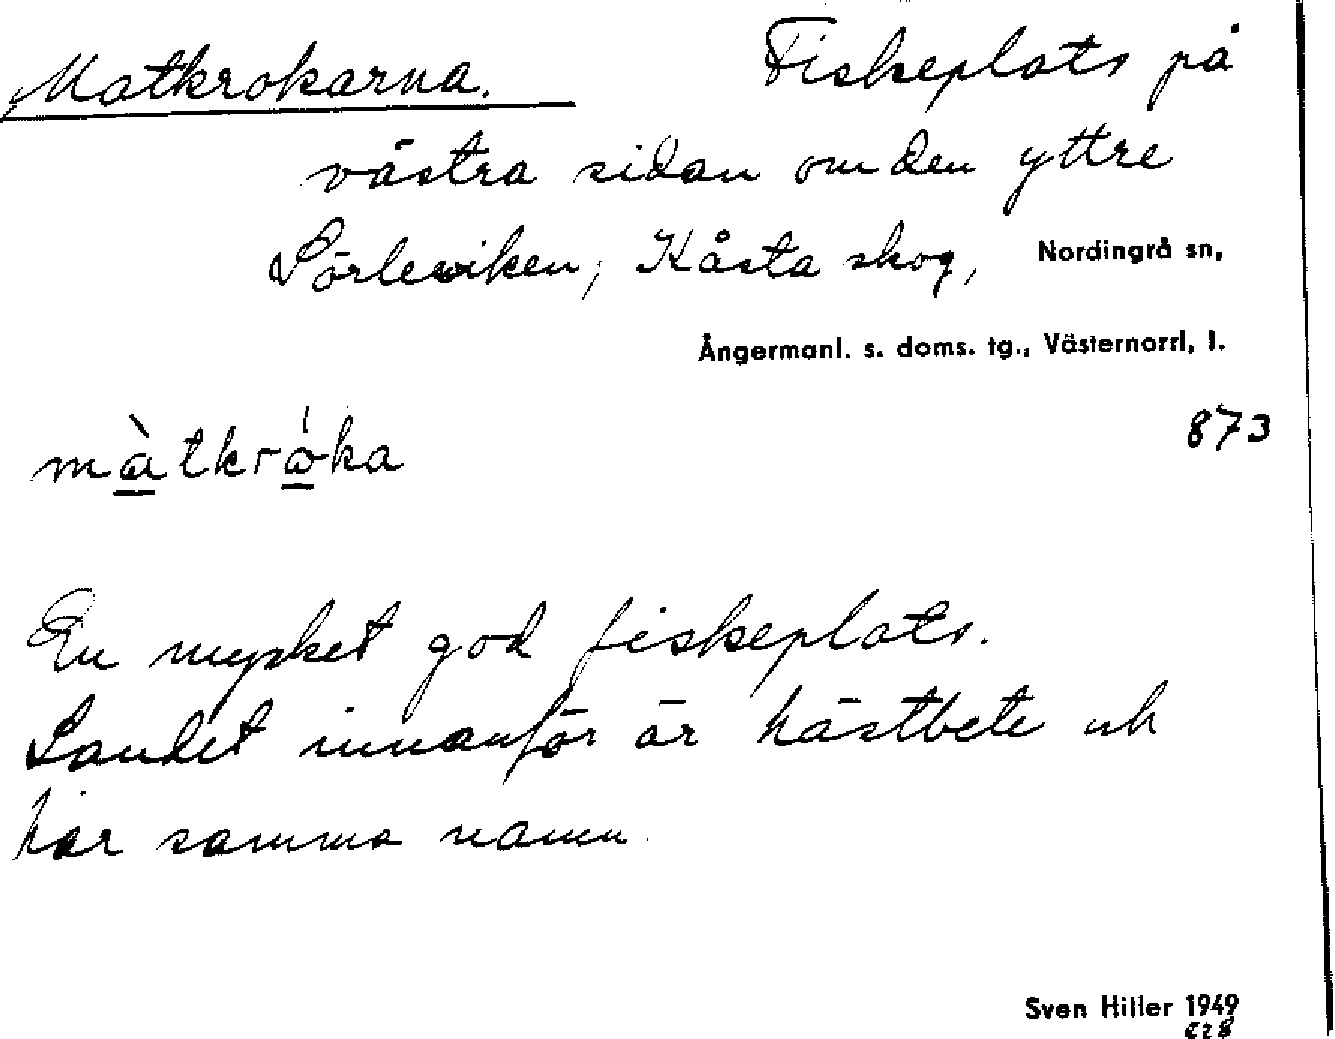 Matkrokarna. Fiskeplats på
västra sidan om den yttre
Sörleviken, Kåsta skog, Nordingrå sn,
Ångermanl. s. doms. tg., Västernorrl. l.
873
màtkròka
En mycket god fiskeplats.
Landet innanför är hästbete och
har samma namn.
Sven Hiller 1949